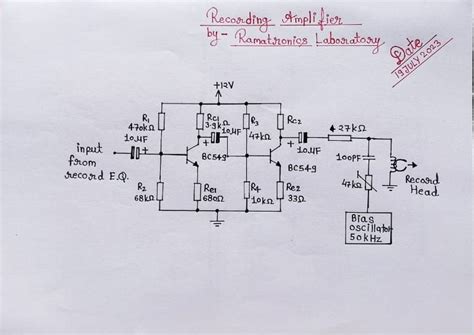 Recording Amplifier
by- Ramatronics Laboratory
Date
19 JULY 2023
+12V
R1
470kΩ
10µF
+
input
from
record E.Q.
R2
68kΩ
Rc1
3.9kΩ
10µF
+
BC549
Re1
680Ω
R3
47kΩ
R4
10kΩ
Rc2
10µF
+
BC549
Re2
33Ω
27kΩ
100PF
47kΩ
Bias
oscillator
50kHz
Record
Head